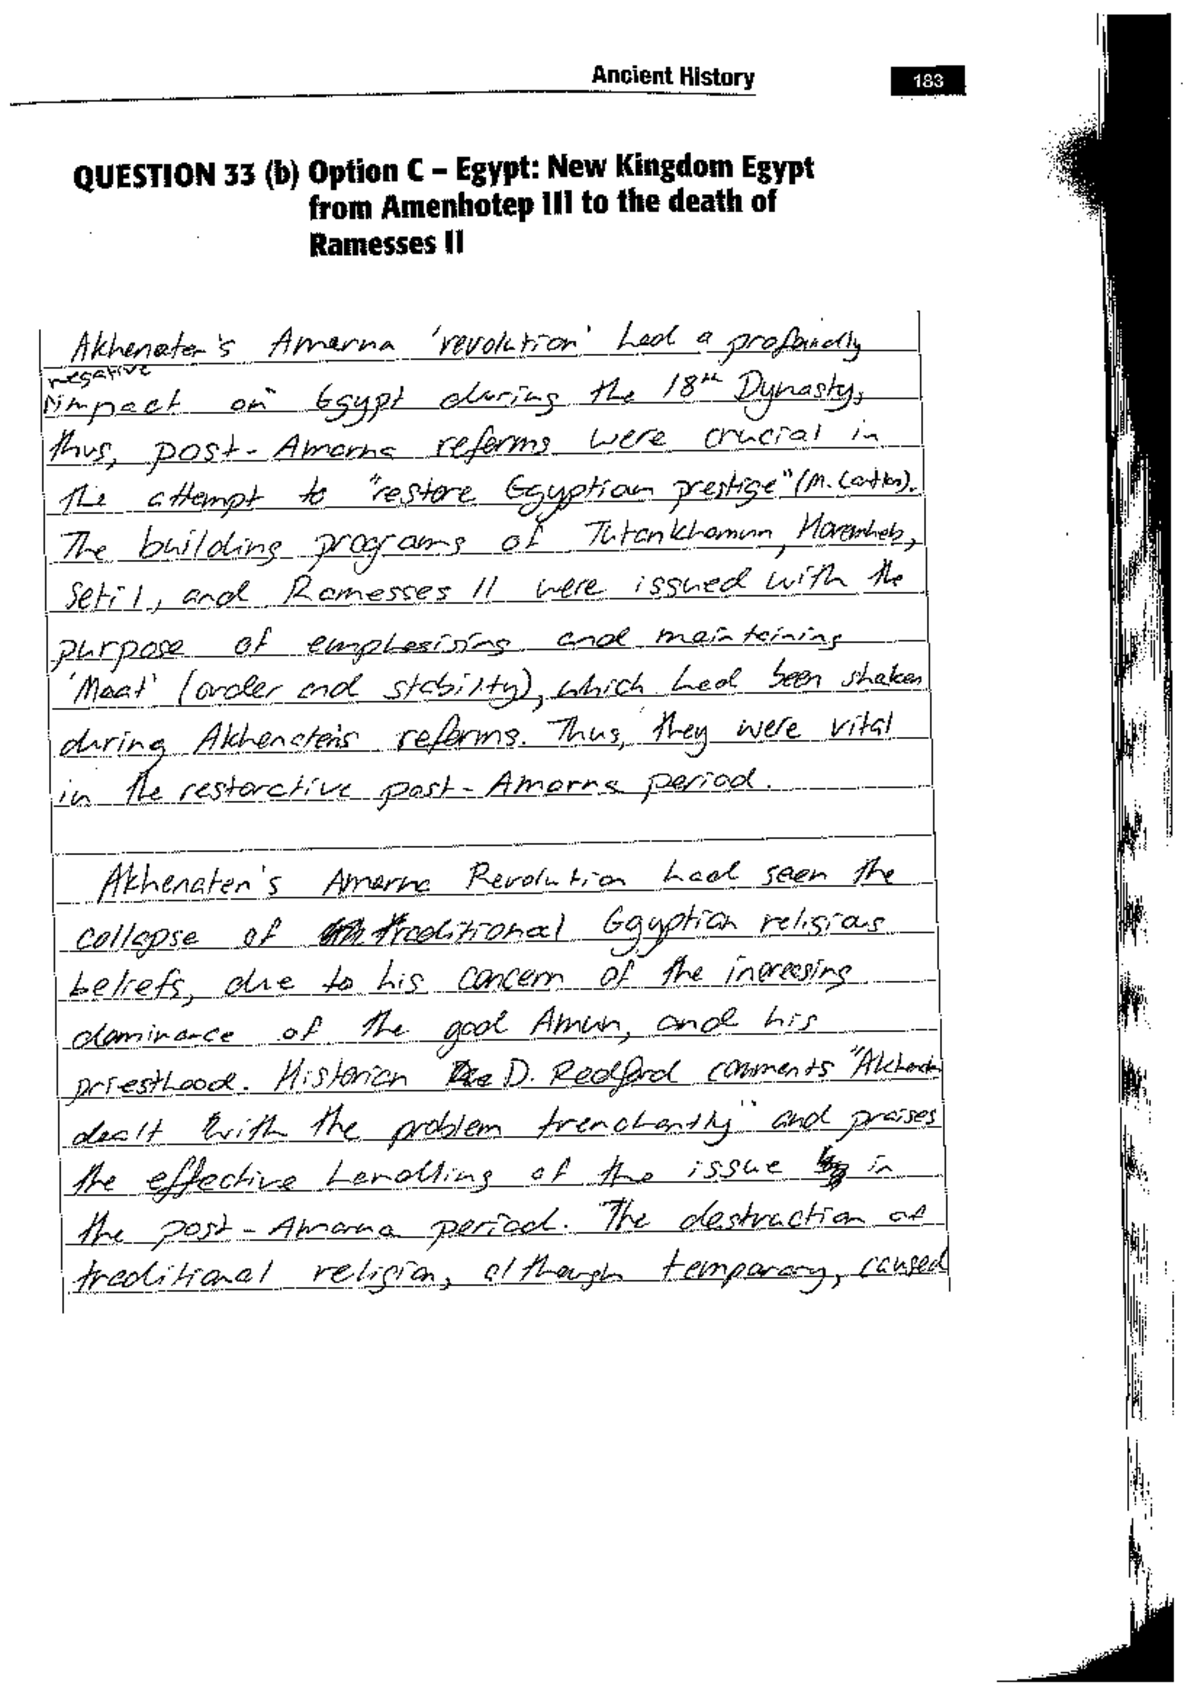 Ancient History 183
QUESTION 33 (b) Option C – Egypt: New Kingdom Egypt
from Amenhotep III to the death of
Ramesses II
Akhenaten's Amarna 'revolution' had a profoundly
negative
impact on Egypt during the 18th Dynasty,
thus, post-Amarna reforms were crucial in
the attempt to "restore Egyptian prestige" (M.
The building programs of Tutankhamun, Horemheb,
Seti I, and Ramesses II were issued with the
purpose of emphasising and maintaining
'Maat' (order and stability), which had been shaken
during Akhenaten's reforms. Thus, they were vital
in the restorative post-Amarna period.
Akhenaten's Amarna Revolution had seen the
collapse of traditional Egyptian religious
beliefs, due to his concern of the increasing
dominance of the god Amun, and his
priesthood. Historian D. Redford comments "Akhenaten
dealt with the problem trenchantly" and praises
the effective handling of the issue in
the post-Amarna period. The destruction of
traditional religion, although temporary, caused